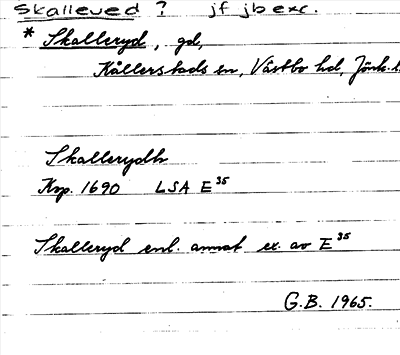 Skalleved ? jf jb exc.
* Skalleryd, gd,
Kållerstads sn, Västbo hd, Jönk. l.
Skallerydh
Kop. 1690 LSA E 35
Skalleryd enl. annat ex. av E 35
G.B. 1965.